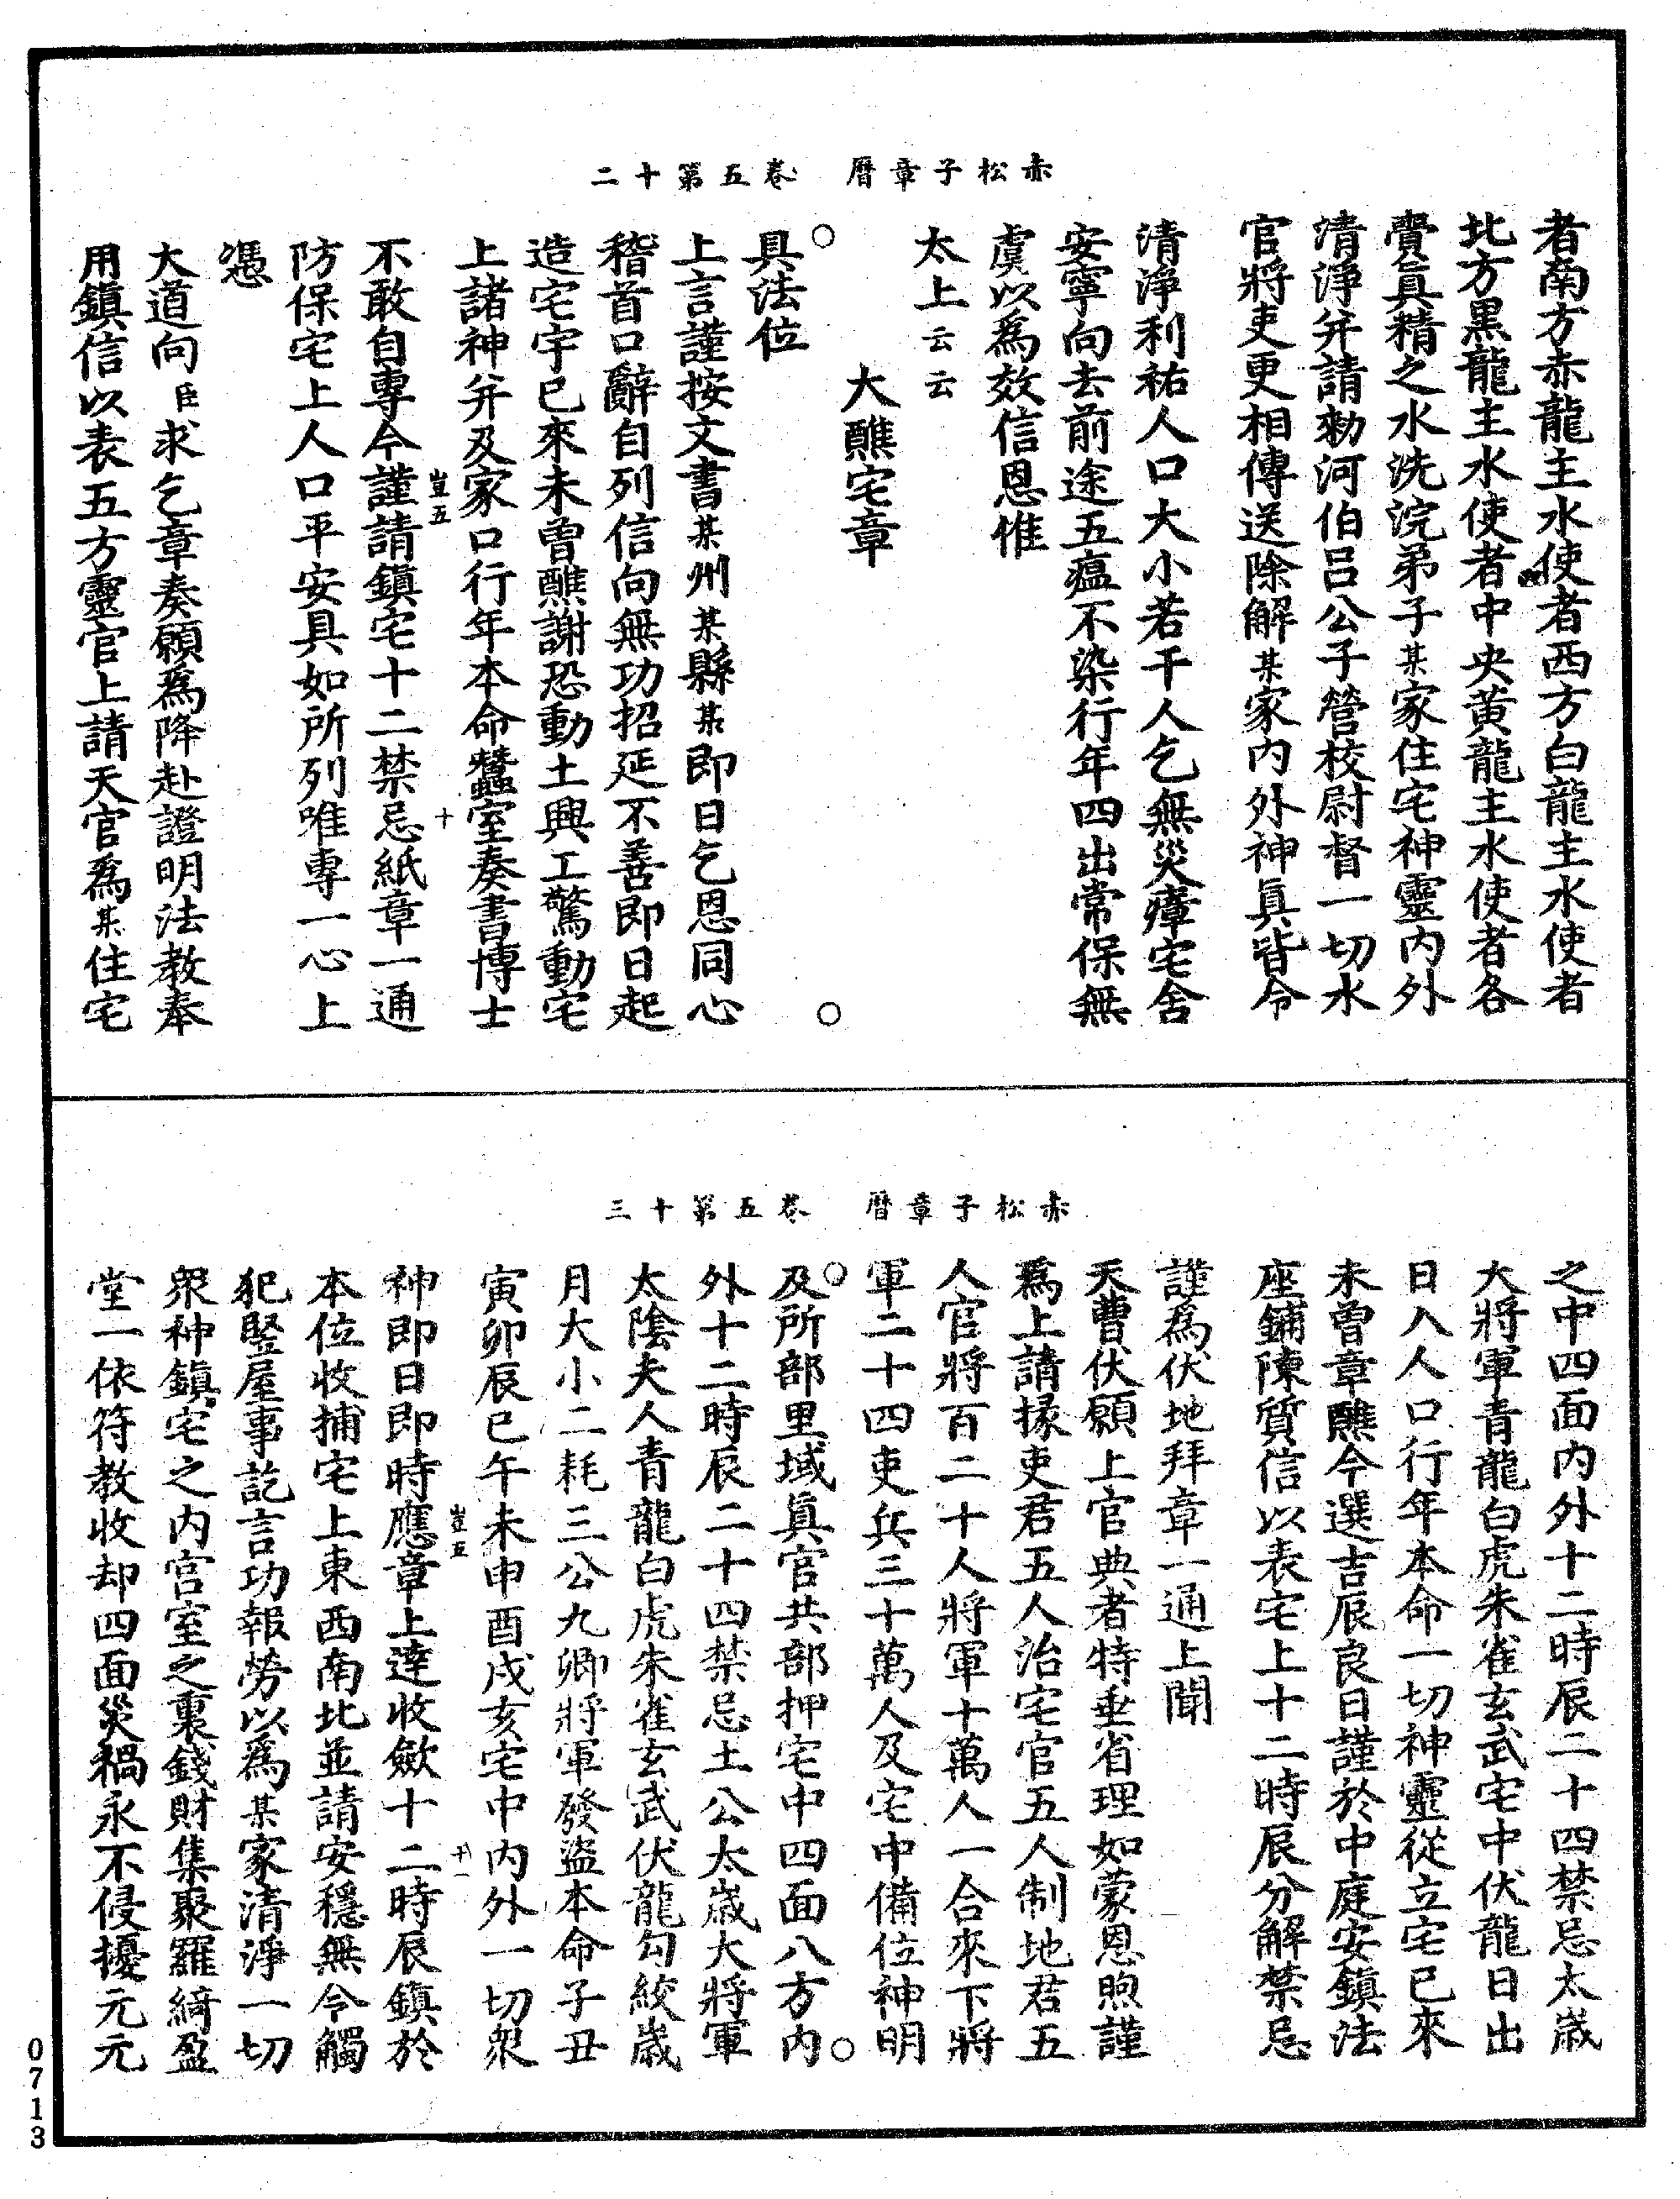 赤松子章曆　卷五第十二
者南方赤龍主水使者西方白龍主水使者
北方黑龍主水使者中央黃龍主水使者各
賷眞精之水洗浣弟子某家住宅神靈內外
清淨并請勑河伯呂公子營校尉督一切水
官將吏更相傳送除解某家內外神眞皆令
清淨利祐人口大小若干人乞無災瘴宅舍
安寧向去前途五瘟不染行年四出常保無
虞以爲效信恩惟
太上云云
大醮宅章
具法位
上言謹按文書某州某縣某即日乞恩同心
稽首口辭自列信向無功招延不善即日起
造宅宇已來未曾醮謝恐動土興工驚動宅
上諸神并及家口行年本命蠶室奏書博士
豈五　十
不敢自專今謹請鎮宅十二禁忌紙章一通
防保宅上人口平安具如所列唯專一心上
憑
大道向臣求乞章奏願爲降赴證明法教奉
用鎮信以表五方靈官上請天官爲某住宅
赤松子章曆　卷五第十三
之中四面內外十二時辰二十四禁忌太歲
大將軍青龍白虎朱雀玄武宅中伏龍日出
日入人口行年本命一切神靈從立宅已來
未曾章醮今選吉辰良日謹於中庭安鎮法
座鋪陳質信以表宅上十二時辰分解禁忌
謹爲伏地拜章一通上聞
天曹伏願上官典者特垂省理如蒙恩煦謹
爲上請掾吏君五人治宅官五人制地君五
人官將百二十人將軍十萬人一合來下將
軍二十四吏兵三十萬人及宅中備位神明
及所部里域眞官共部押宅中四面八方內
外十二時辰二十四禁忌土公太歲大將軍
太陰夫人青龍白虎朱雀玄武伏龍勾絞歲
月大小二耗三公九卿將軍發盜本命子丑
寅卯辰巳午未申酉戌亥宅中內外一切衆
豈五　十一
神即日即時應章上達收斂十二時辰鎮於
本位收捕宅上東西南北並請安穩無令觸
犯竪屋事訖言功報勞以爲某家清淨一切
衆神鎮宅之內宮室之裏錢財集聚羅綺盈
堂一依符教收却四面災禍永不侵擾元元
0713